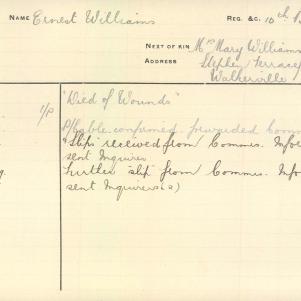 NAME Ernest Williams
REG. &C. 10th
NEXT OF KIN Mrs Mary Williams
ADDRESS Stepley Terrace
Walkerville
1/P "Died of Wounds"
P/Cable confirmed forwarded
"Slips" received from Commes.
sent Inquirers
Further "slip" from Commes.
sent Inquirers